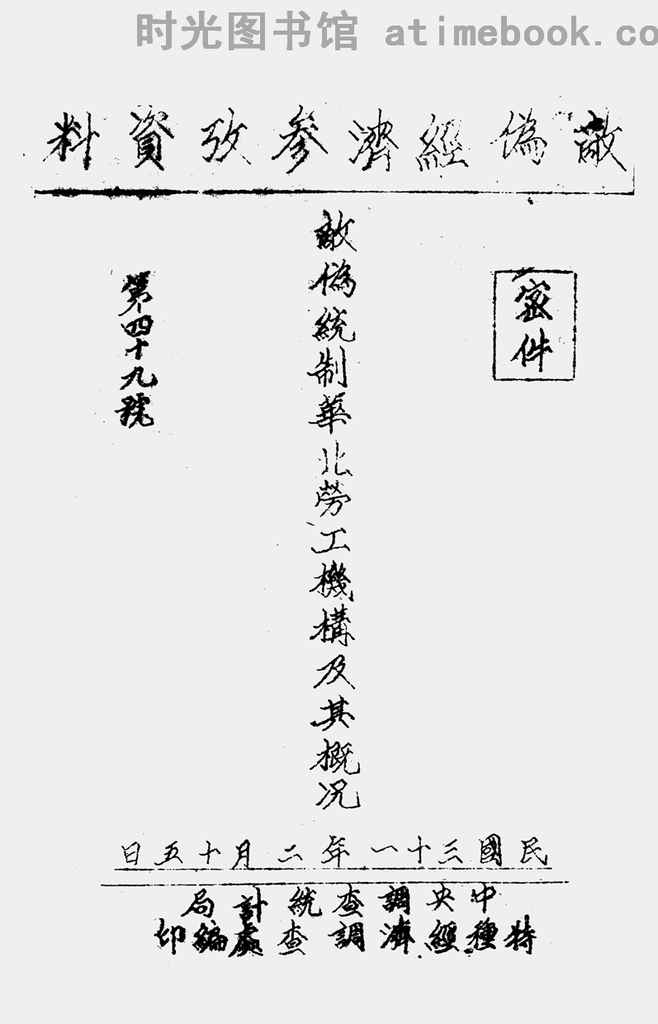 时光图书馆 atimebook.co
敵偽經濟參攷資料
密件
敵偽統制華北勞工機構及其概況
第四十九號
民國三十一年二月十五日
中央調查統計局
特種經濟調查處編印